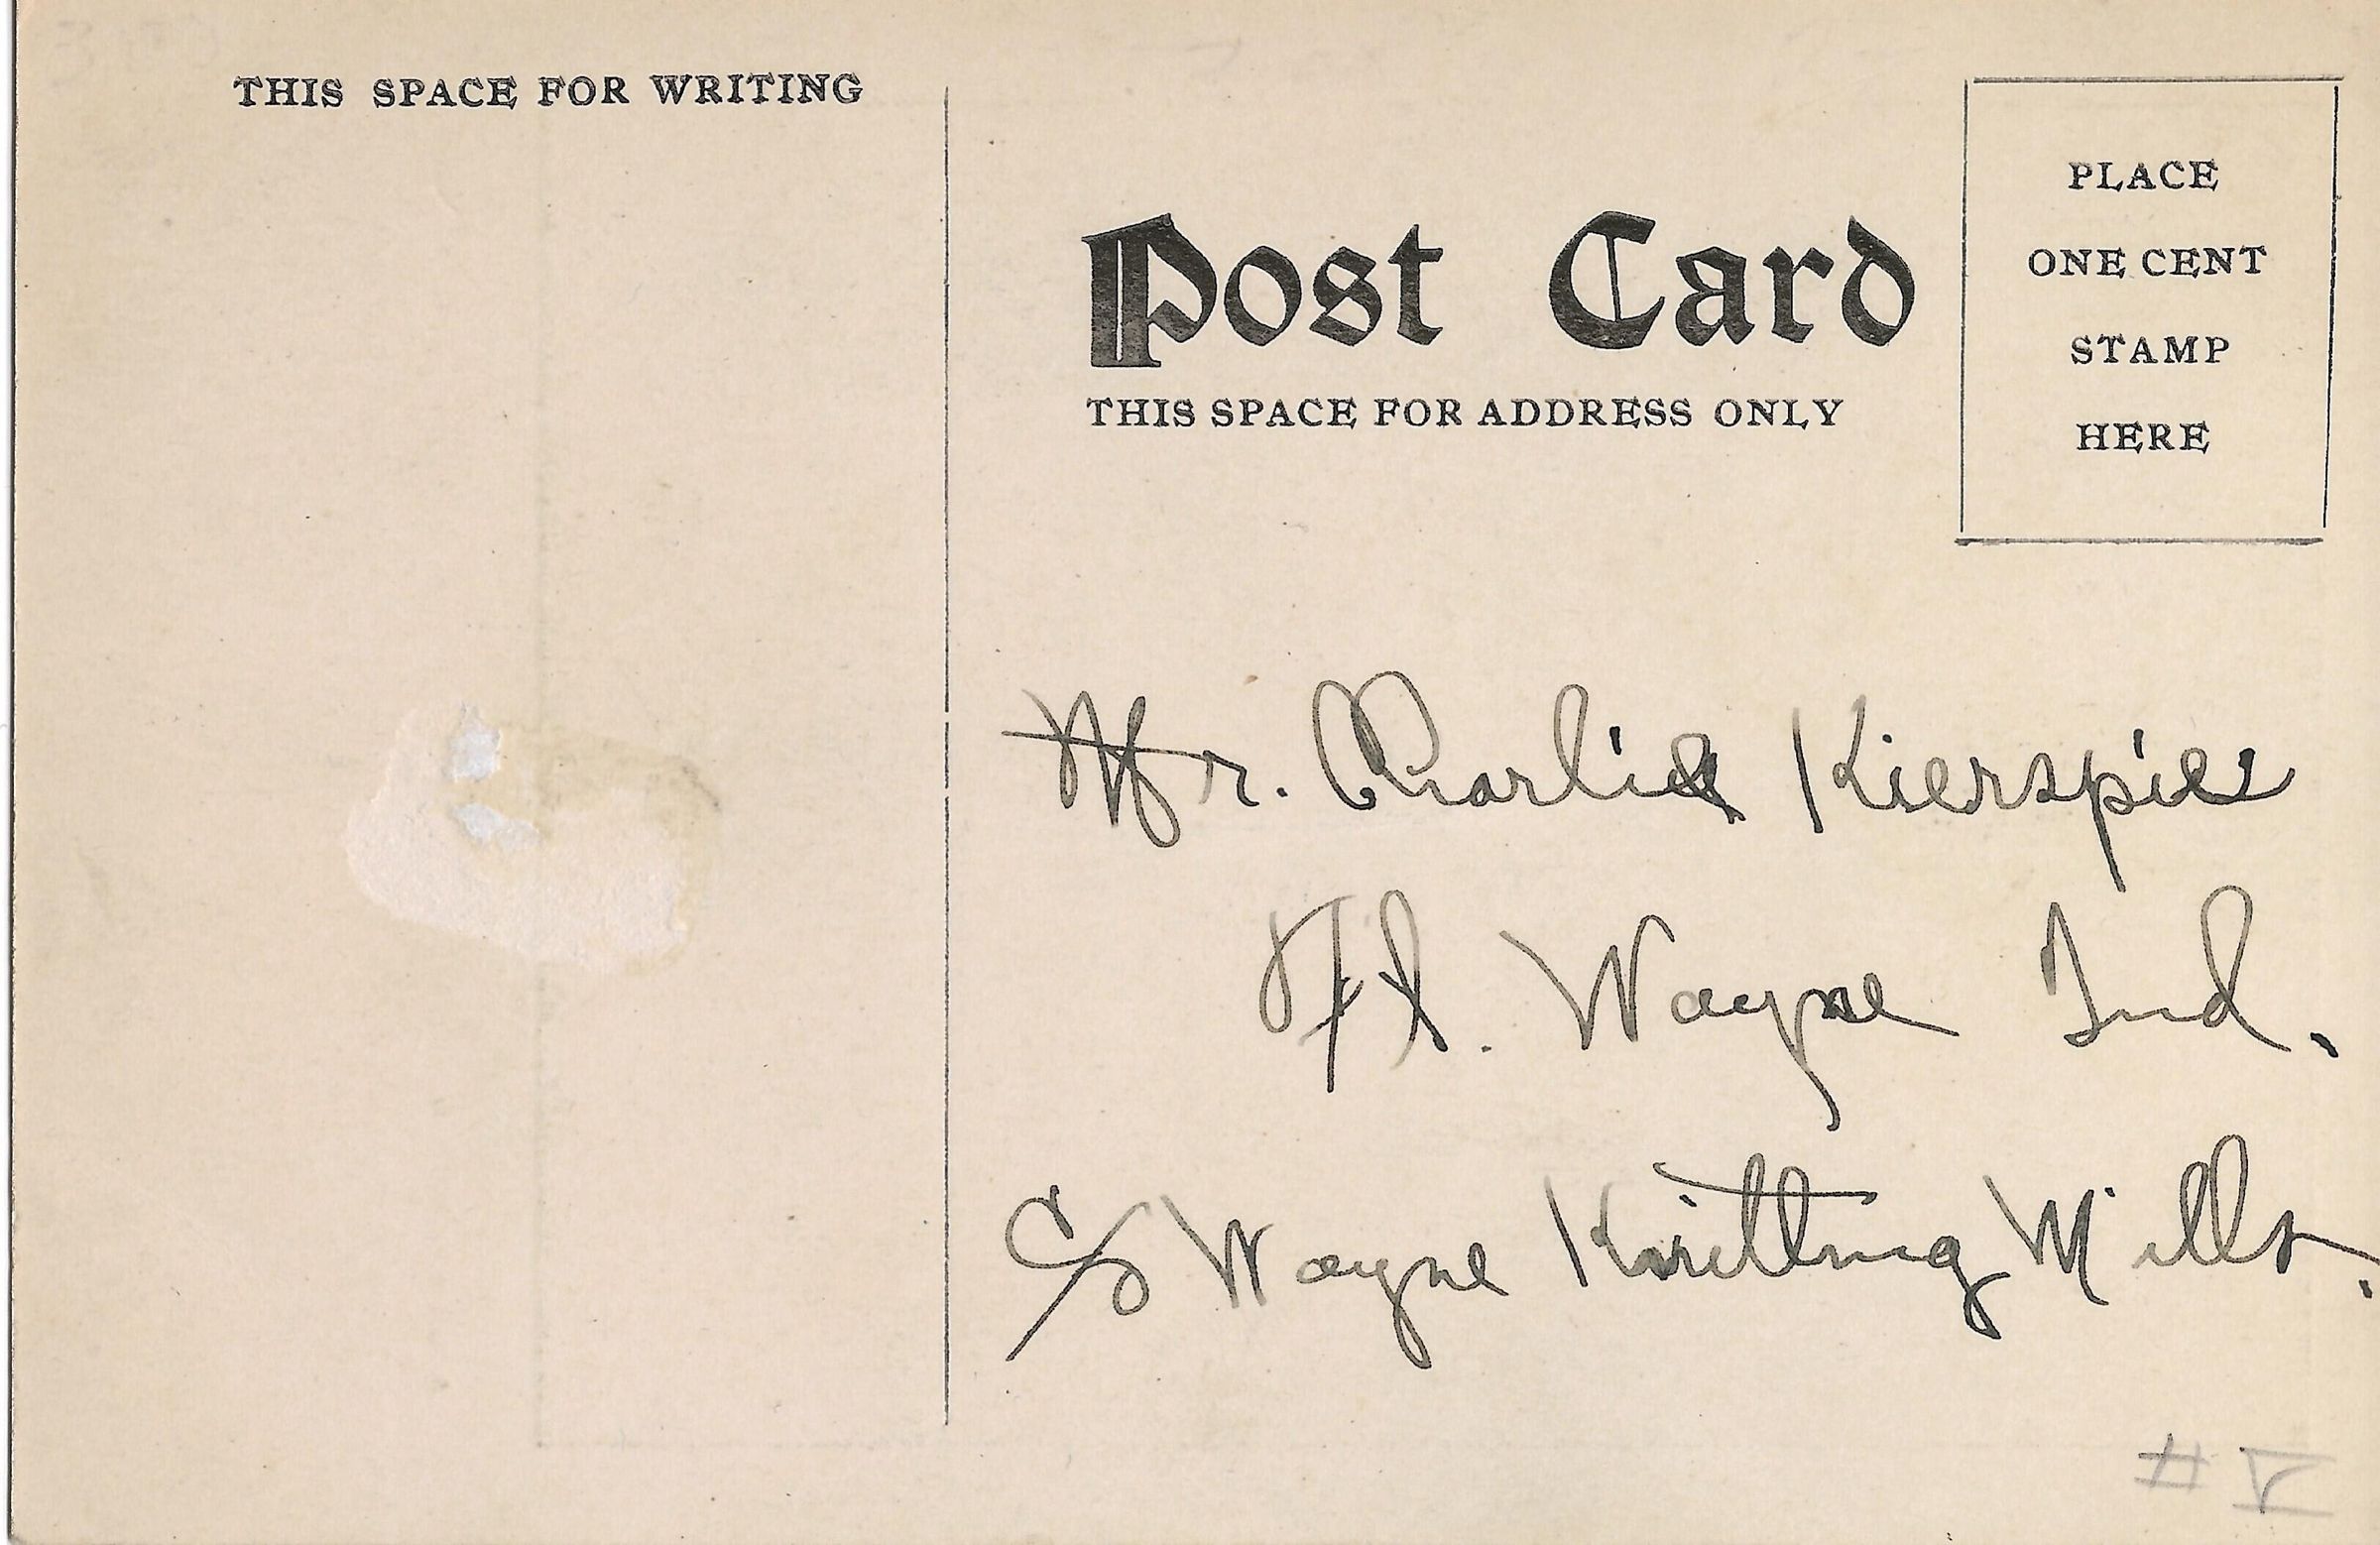 THIS SPACE FOR WRITING
Post Card
THIS SPACE FOR ADDRESS ONLY
PLACE
ONE CENT
STAMP
HERE
Mr. Charlie Kierspies
Ft. Wayne Ind.
c/o Wayne Knitting Mills.
# V